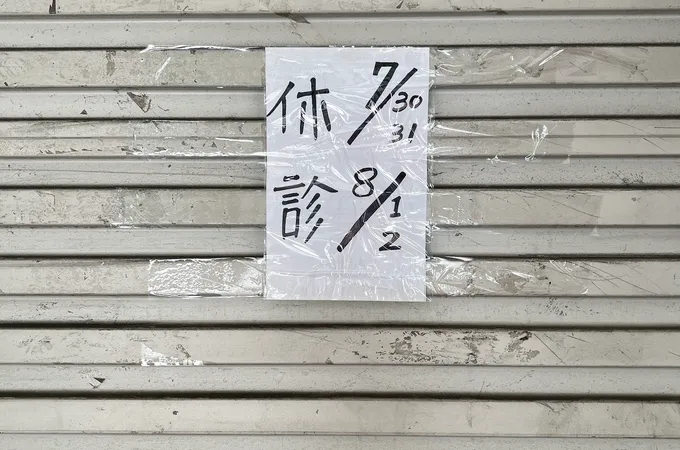 休診
7/30
31
8/1
2